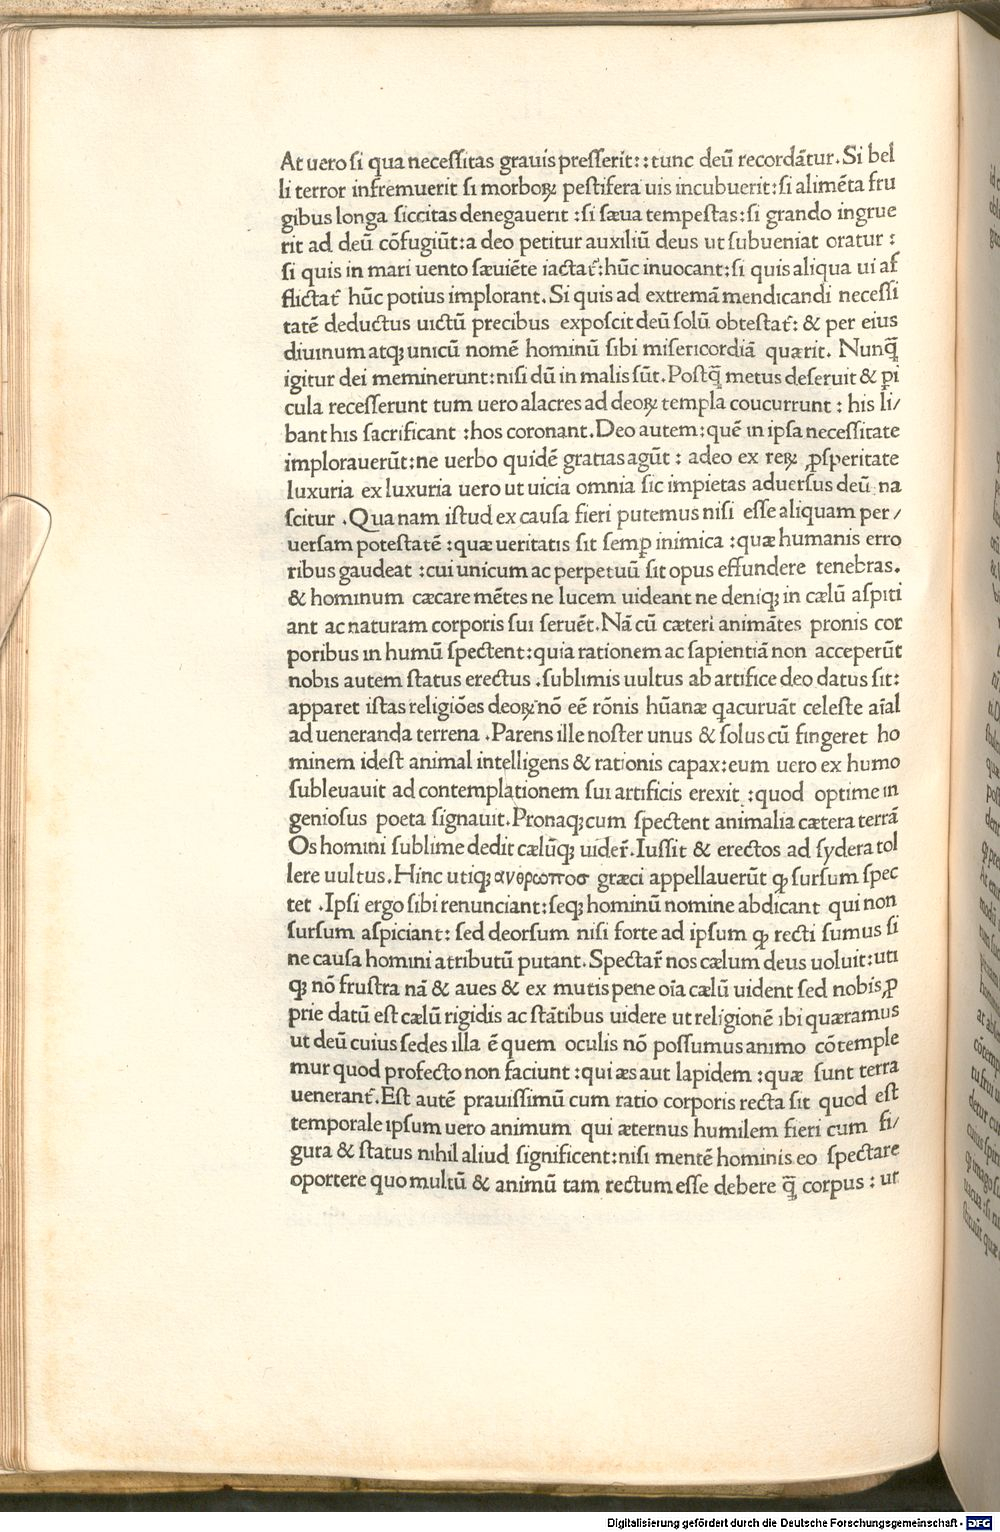 At uero ſi qua neceſſitas grauis preſſerit::tunc deū recordātur.Si bel
li terror infremuerit ſi morboꝝ peſtifera uis incubuerit:ſi alimēta fru
gibus longa ſiccitas denegauerit :ſi ſæua tempeſtas:ſi grando ingrue
rit ad deū cōfugiūt:a deo petitur auxiliū deus ut ſubueniat oratur :
ſi quis in mari uento ſæuiēte iactat᷑:hūc inuocant:ſi quis aliqua ui af
flictat᷑ hūc potius implorant.Si quis ad extremā mendicandi neceſſi
tatē deductus uictū precibus expoſcit deū ſolū obteſtat᷑: & per eius
diuinum atqꝫ unicū nomē hominū ſibi miſericordiā quærit. Nunq̄
igitur dei meminerunt:niſi dū in malis ſūt.Poſtq̄ metus deſeruit & ꝑi
cula receſſerunt tum uero alacres ad deoꝝ templa coucurrunt : his li/
bant his ſacrificant :hos coronant.Deo autem:quē in ipſa neceſſitate
implorauerūt:ne uerbo quidē gratias agūt : adeo ex reꝝ ꝓſperitate
luxuria ex luxuria uero ut uicia omnia ſic impietas aduerſus deū na
ſcitur .Qua nam iſtud ex cauſa fieri putemus niſi eſſe aliquam per/
uerſam poteſtatē :quæ ueritatis ſit ſemꝑ inimica :quæ humanis erro
ribus gaudeat :cui unicum ac perpetuū ſit opus effundere tenebras.
& hominum cæcare mētes ne lucem uideant ne deniqꝫ in cælū aſpiti
ant ac naturam corporis ſui ſeruēt.Nā cū cæteri animātes pronis cor
poribus in humū ſpectent:quia rationem ac ſapientiā non acceperūt
nobis autem ſtatus erectus .ſublimis uultus ab artifice deo datus ſit:
apparet iſtas religiōes deoꝝ nō eē rōnis hūanæ q̱a curuāt celeſte aīal
ad ueneranda terrena .Parens ille noſter unus & ſolus cū fingeret ho
minem ideſt animal intelligens & rationis capax:eum uero ex humo
ſubleuauit ad contemplationem ſui artificis erexit :quod optime in
genioſus poeta ſignauit.Pronaqꝫ cum ſpectent animalia cætera terrā
Os homini ſublime dedit cælūqꝫ uider᷑.Iuſſit & erectos ad ſydera tol
lere uultus.Hinc utiqꝫ ανθρωποσ græci appellauerūt ꝙ ſurſum ſpec
tet .Ipſi ergo ſibi renunciant:ſeqꝫ hominū nomine abdicant qui non
ſurſum aſpiciant: ſed deorſum niſi forte ad ipſum ꝙ recti ſumus ſi
ne cauſa homini atributū putant.Spectar᷑ nos cælum deus uoluit:uti
qꝫ nō fruſtra nā & aues & ex mutis pene oīa cælū uident ſed nobis ꝓ
prie datū eſt cælū rigidis ac ſtātibus uidere ut religionē ibi quæramus
ut deū cuius ſedes illa ē quem oculis nō poſſumus animo cōtemple
mur quod profecto non faciunt :qui æs aut lapidem :quæ ſunt terra
uenerant᷑.Eſt autē prauiſſimū cum ratio corporis recta ſit quod eſt
temporale ipſum uero animum qui æternus humilem fieri cum fi/
gura & ſtatus nihil aliud ſignificent:niſi mentē hominis eo ſpectare
oportere quo multū & animū tam rectum eſſe debere q̄ corpus : ut
Digitalisierung gefördert durch die Deutsche Forschungsgemeinschaft - DFG